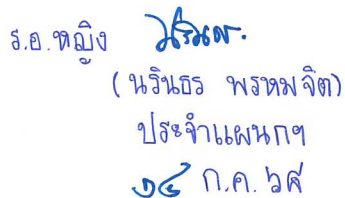 ร.อ.หญิง
(นรินธร พรหมจิต)
ประจำแผนกฯ
๑๕ ก.ค. ๖๘